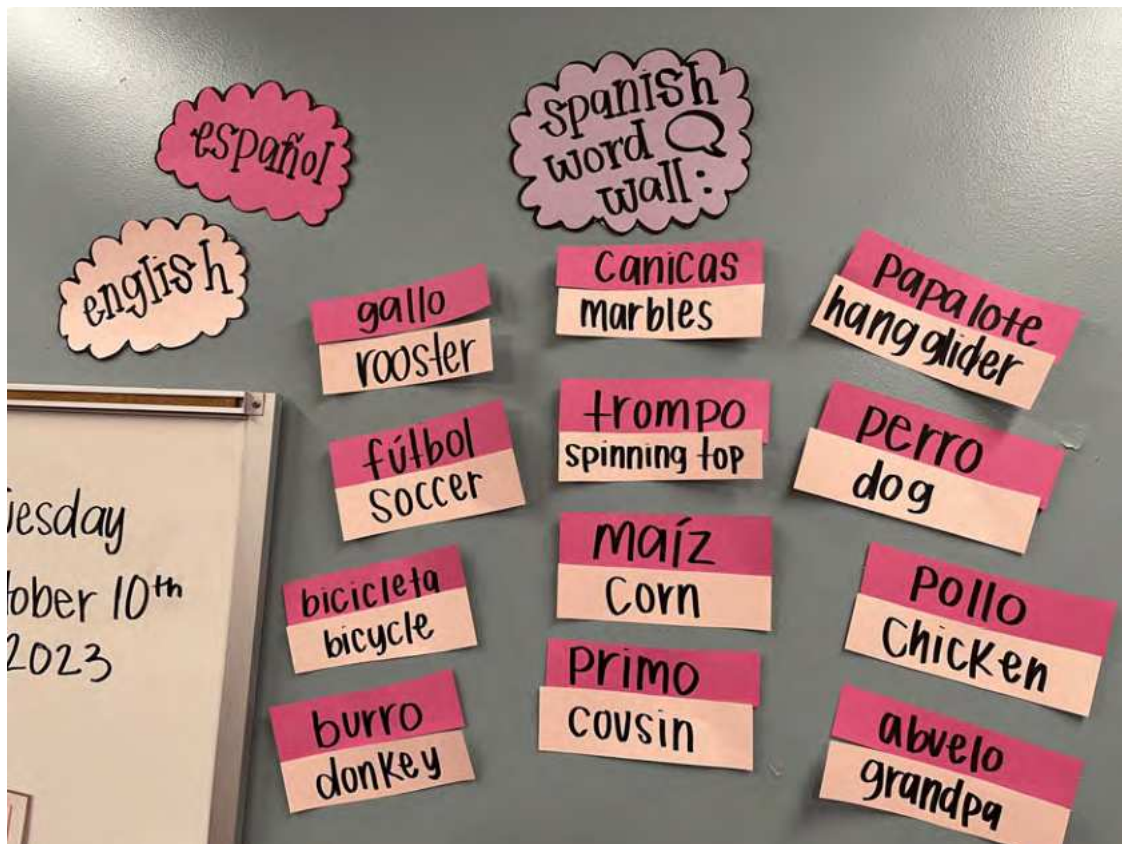 español
english
spanish
word
wall:
gallo
rooster
fútbol
soccer
bicicleta
bicycle
burro
donkey
canicas
marbles
trompo
spinning top
maíz
Corn
primo
cousin
papalote
hang glider
perro
dog
pollo
Chicken
abuelo
grandpa
uesday
tober 10th
2023